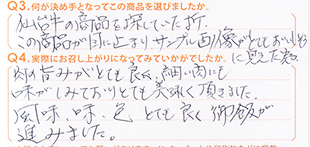 Q3.何が決め手となってこの商品を選びましたか。
仙台牛の商品を探していた所、
この商品が目に止まり、サンプル画像がとてもおいしそうに見えた為
Q4.実際にお召し上がりになってみていかがでしたか。
肉の旨みがとても良く、細い肉にも
味がしみており、とても美味く頂きました。
風味、味、色 とても良く 御飯が
進みました。